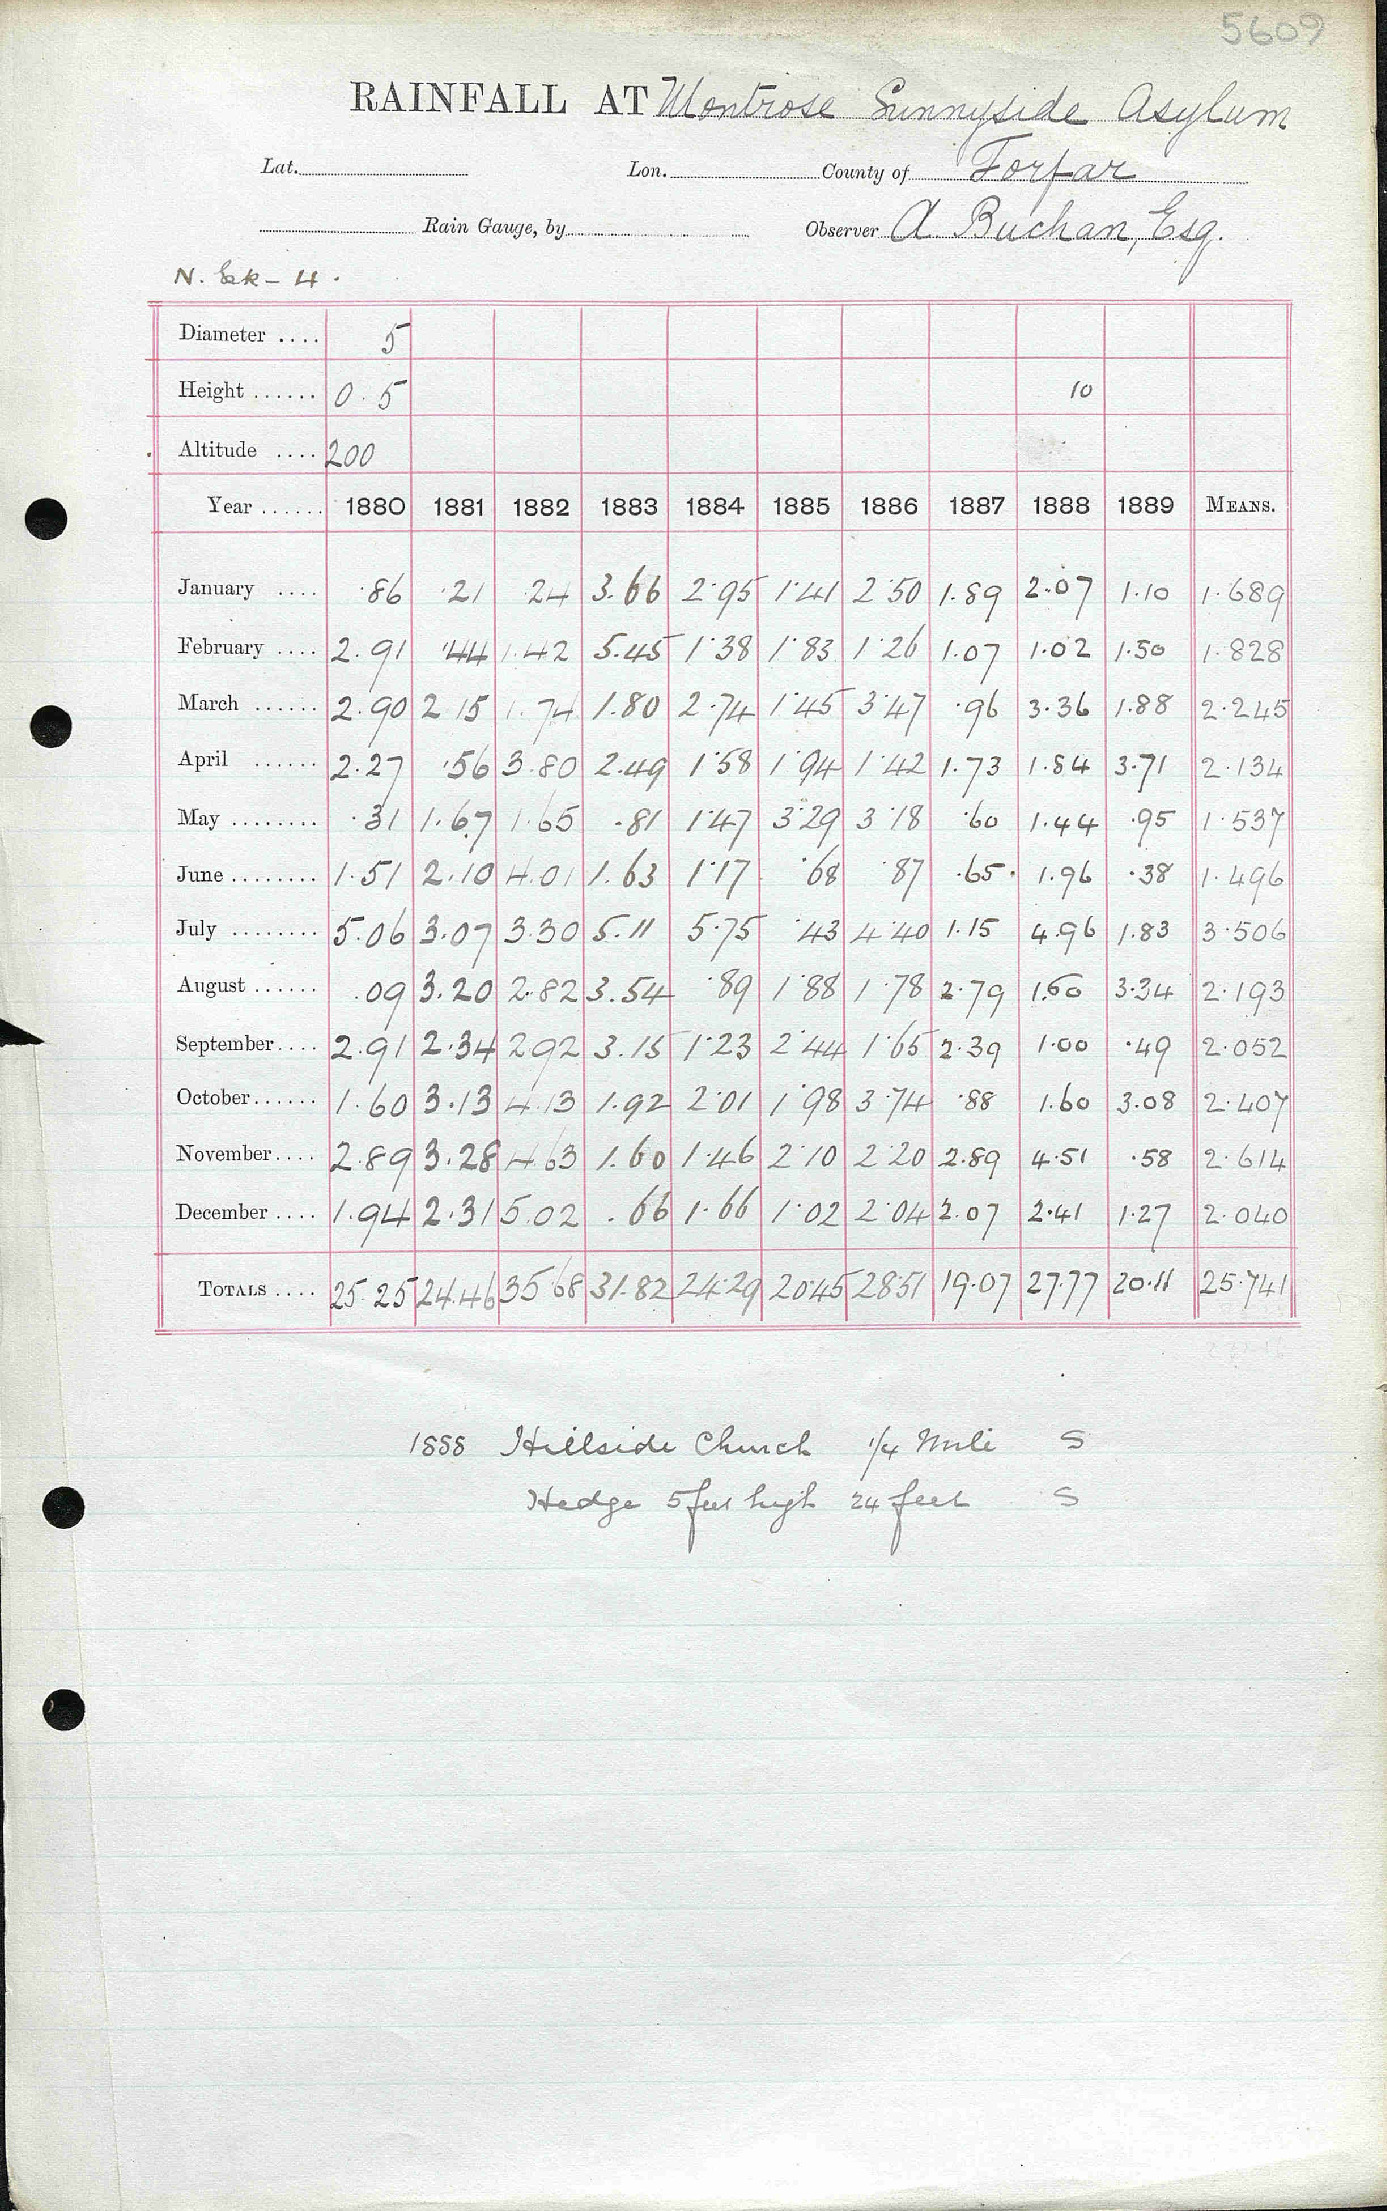 5609
RAINFALL AT Montrose Sunnyside Asylum
Lat. Lon. County of Forfar
Rain Gauge, by Observer A Buchan, Esq.
N. Esk - 4.
Diameter .... 5
Height ...... 0.5 10
Altitude .... 200
Year ...... 1880 1881 1882 1883 1884 1885 1886 1887 1888 1889 MEANS.
January .... .86 .21 .24 3.66 2.95 1.41 2.50 1.89 2.07 1.10 1.689
February .... 2.91 .44 1.42 5.45 1.38 1.83 1.26 1.07 1.02 1.50 1.828
March ...... 2.90 2.15 1.74 1.80 2.74 1.45 3.47 .96 3.36 1.88 2.245
April ...... 2.27 .56 3.80 2.49 1.58 1.94 1.42 1.73 1.84 3.71 2.134
May ........ .31 1.67 1.65 .81 1.47 3.29 3.18 .60 1.44 .95 1.537
June ........ 1.51 2.10 4.01 1.63 1.17 .68 .87 .65. 1.96 .38 1.496
July ........ 5.06 3.07 3.30 5.11 5.75 .43 4.40 1.15 4.96 1.83 3.506
August ...... .09 3.20 2.82 3.54 .89 1.88 1.78 2.79 1.60 3.34 2.193
September .... 2.91 2.34 2.92 3.15 1.23 2.44 1.65 2.39 1.00 .49 2.052
October ...... 1.60 3.13 4.13 1.92 2.01 1.98 3.74 .88 1.60 3.08 2.407
November .... 2.89 3.28 4.63 1.60 1.46 2.10 2.20 2.89 4.51 .58 2.614
December .... 1.94 2.31 5.02 .66 1.66 1.02 2.04 2.07 2.41 1.27 2.040
TOTALS .... 25.25 24.46 35.68 31.82 24.29 20.45 28.51 19.07 27.77 20.11 25.741
1888 Hillside Church 1/4 Mile S
Hedge 5 feet high 24 feet S